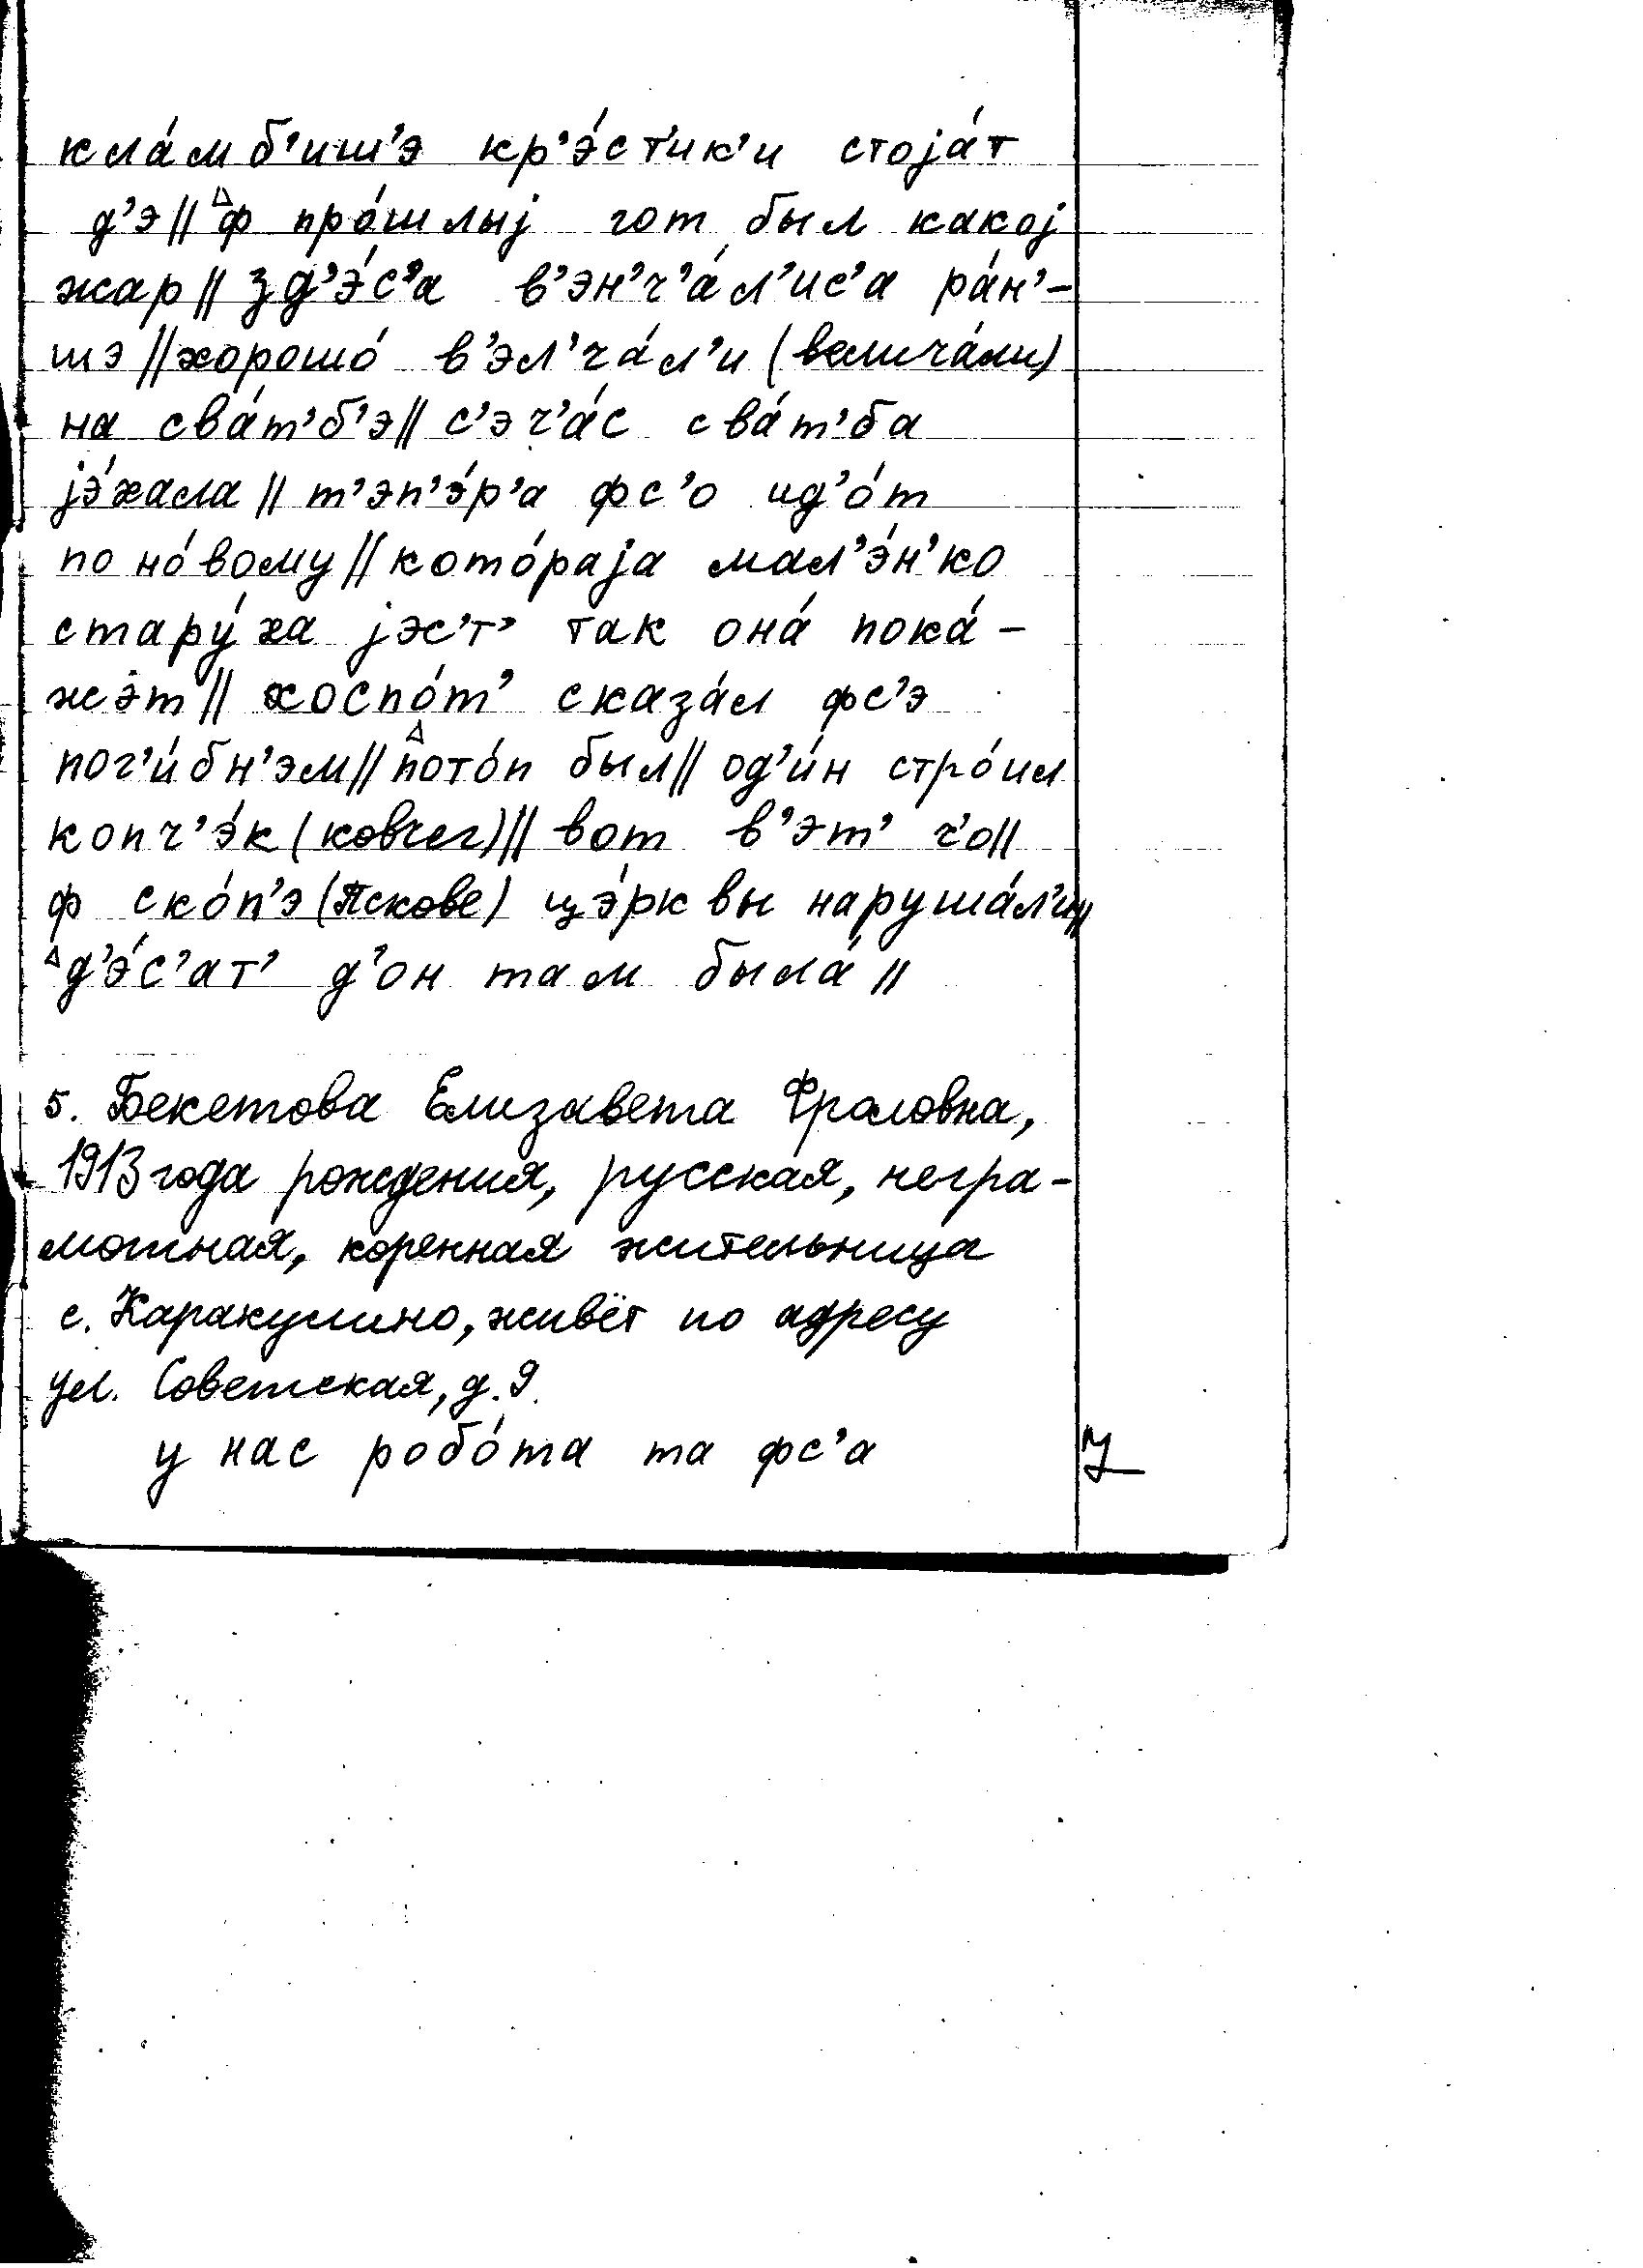 кла́мб’иш’э кр’э́ст’ик’и стоја́т
д’э || ᐃф про́шлыј гот был какој
жар || зд’э́с’а в’эн’ч’а́л’ис’а ра́н’-
шэ || хорошо́ в’эл’ча́л’и (велича́ли)
на сва́т’б’э || с’эч’а́с сва́т’ба
јэ́хала || т’эп’э́р’а фс’о ид’о́т
по но́вому || кото́раја мал’э́н’ко
стару́ха јэс’т’ так она́ пока́-
жэт || хоспо́т’ сказа́л фс’э
пог’и́бн’эм || ᐃпото́п был || од’и́н стро́ил
копч’э́к (ковчег) || вот в’эт’ ч’о ||
ф ско́п’э (Пскове) цэ́рквы наруша́л’и ||
ᐃд’э́с’ат’ д’он там была́ ||
5. Бекетова Елизавета Фроловна,
1913 года рождения, русская, негра-
мотная, коренная жительница
с. Каракулино, живёт по адресу
ул. Советская, д. 9.
у нас робо́та та фс’а